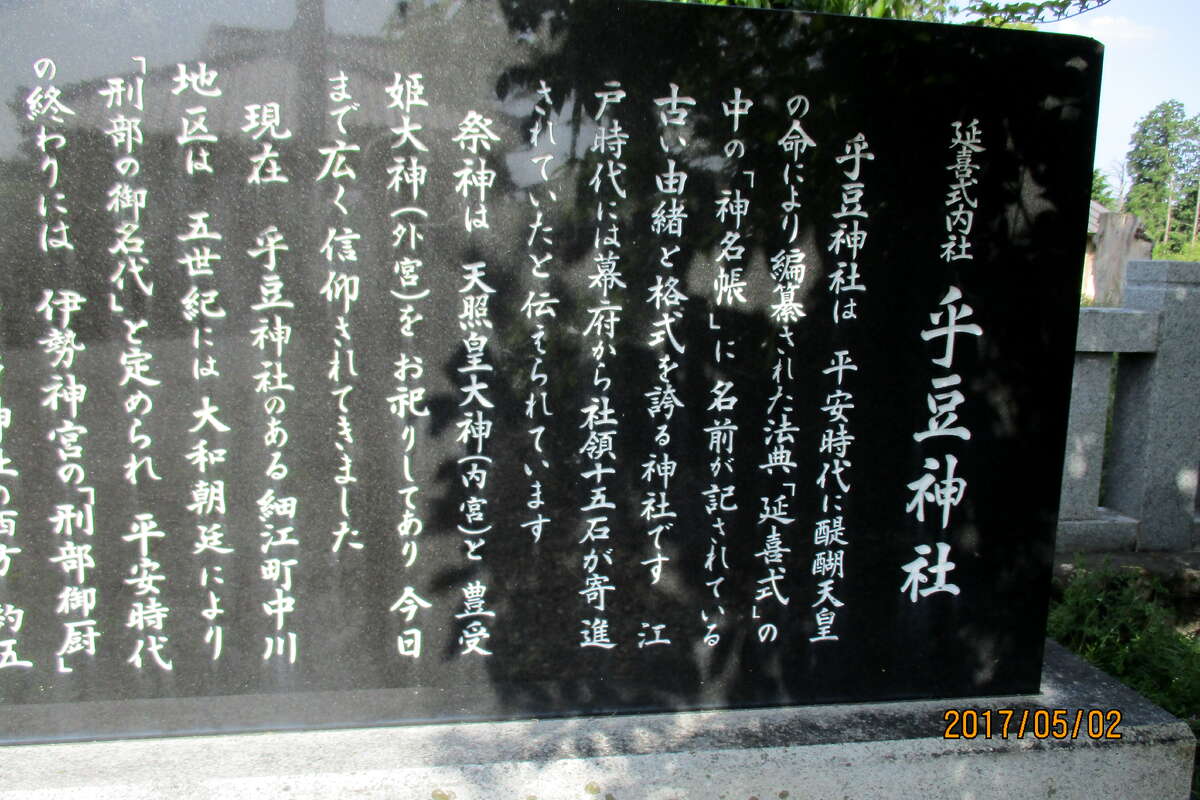 延喜式内社 乎豆神社
乎豆神社は 平安時代に醍醐天皇
の命により編纂された法典「延喜式」の
中の「神名帳」に名前が記されている
古い由緒と格式を誇る神社です 江
戸時代には幕府から社領十五石が寄進
されていたと伝えられています
祭神は 天照皇大神(内宮)と豊受
姫大神(外宮)をお祀りしてあり 今日
まで広く信仰されてきました
現在 乎豆神社のある細江町中川
地区は 五世紀には大和朝廷により
「刑部の御名代」と定められ 平安時代
の終わりには 伊勢神宮の「刑部御厨」
神社の西方 約五
2017/05/02